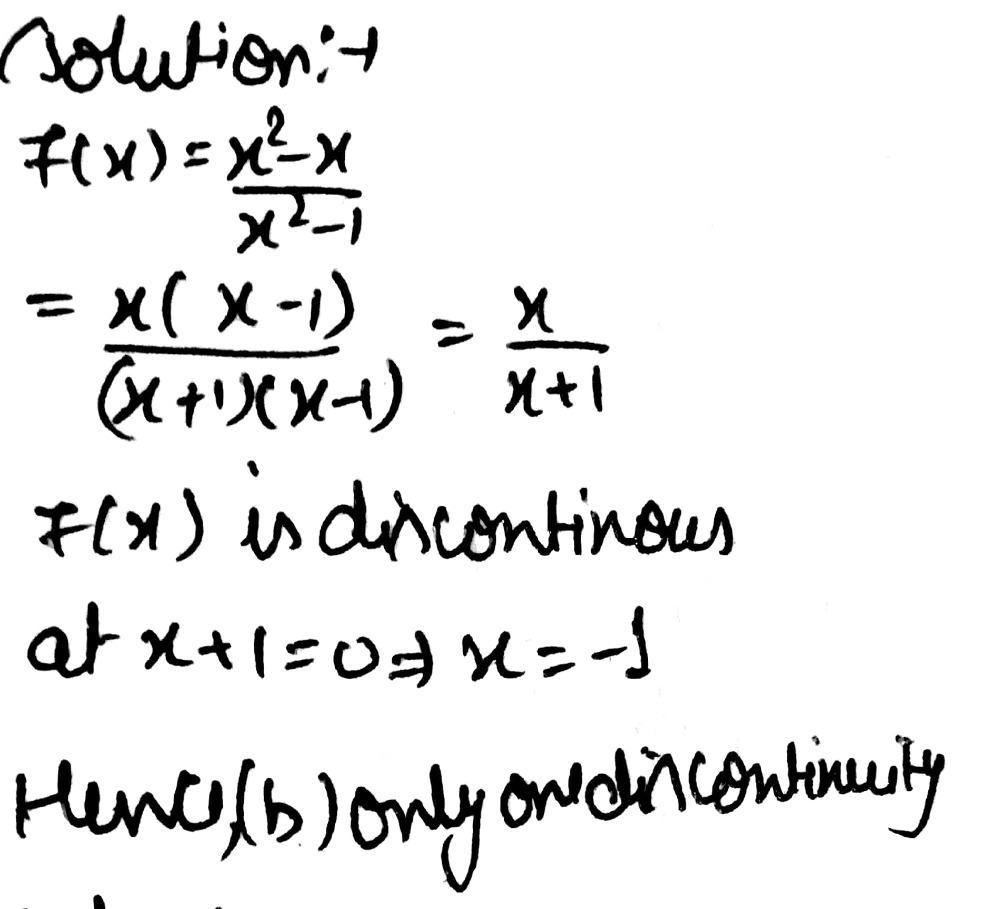 Solution:→
F(x) = x²-x / x²-1
= x(x-1) / (x+1)(x-1) = x / x+1
F(x) is discontinous
at x+1=0⇒ x=-1
Hence,(b) only one discontinuity